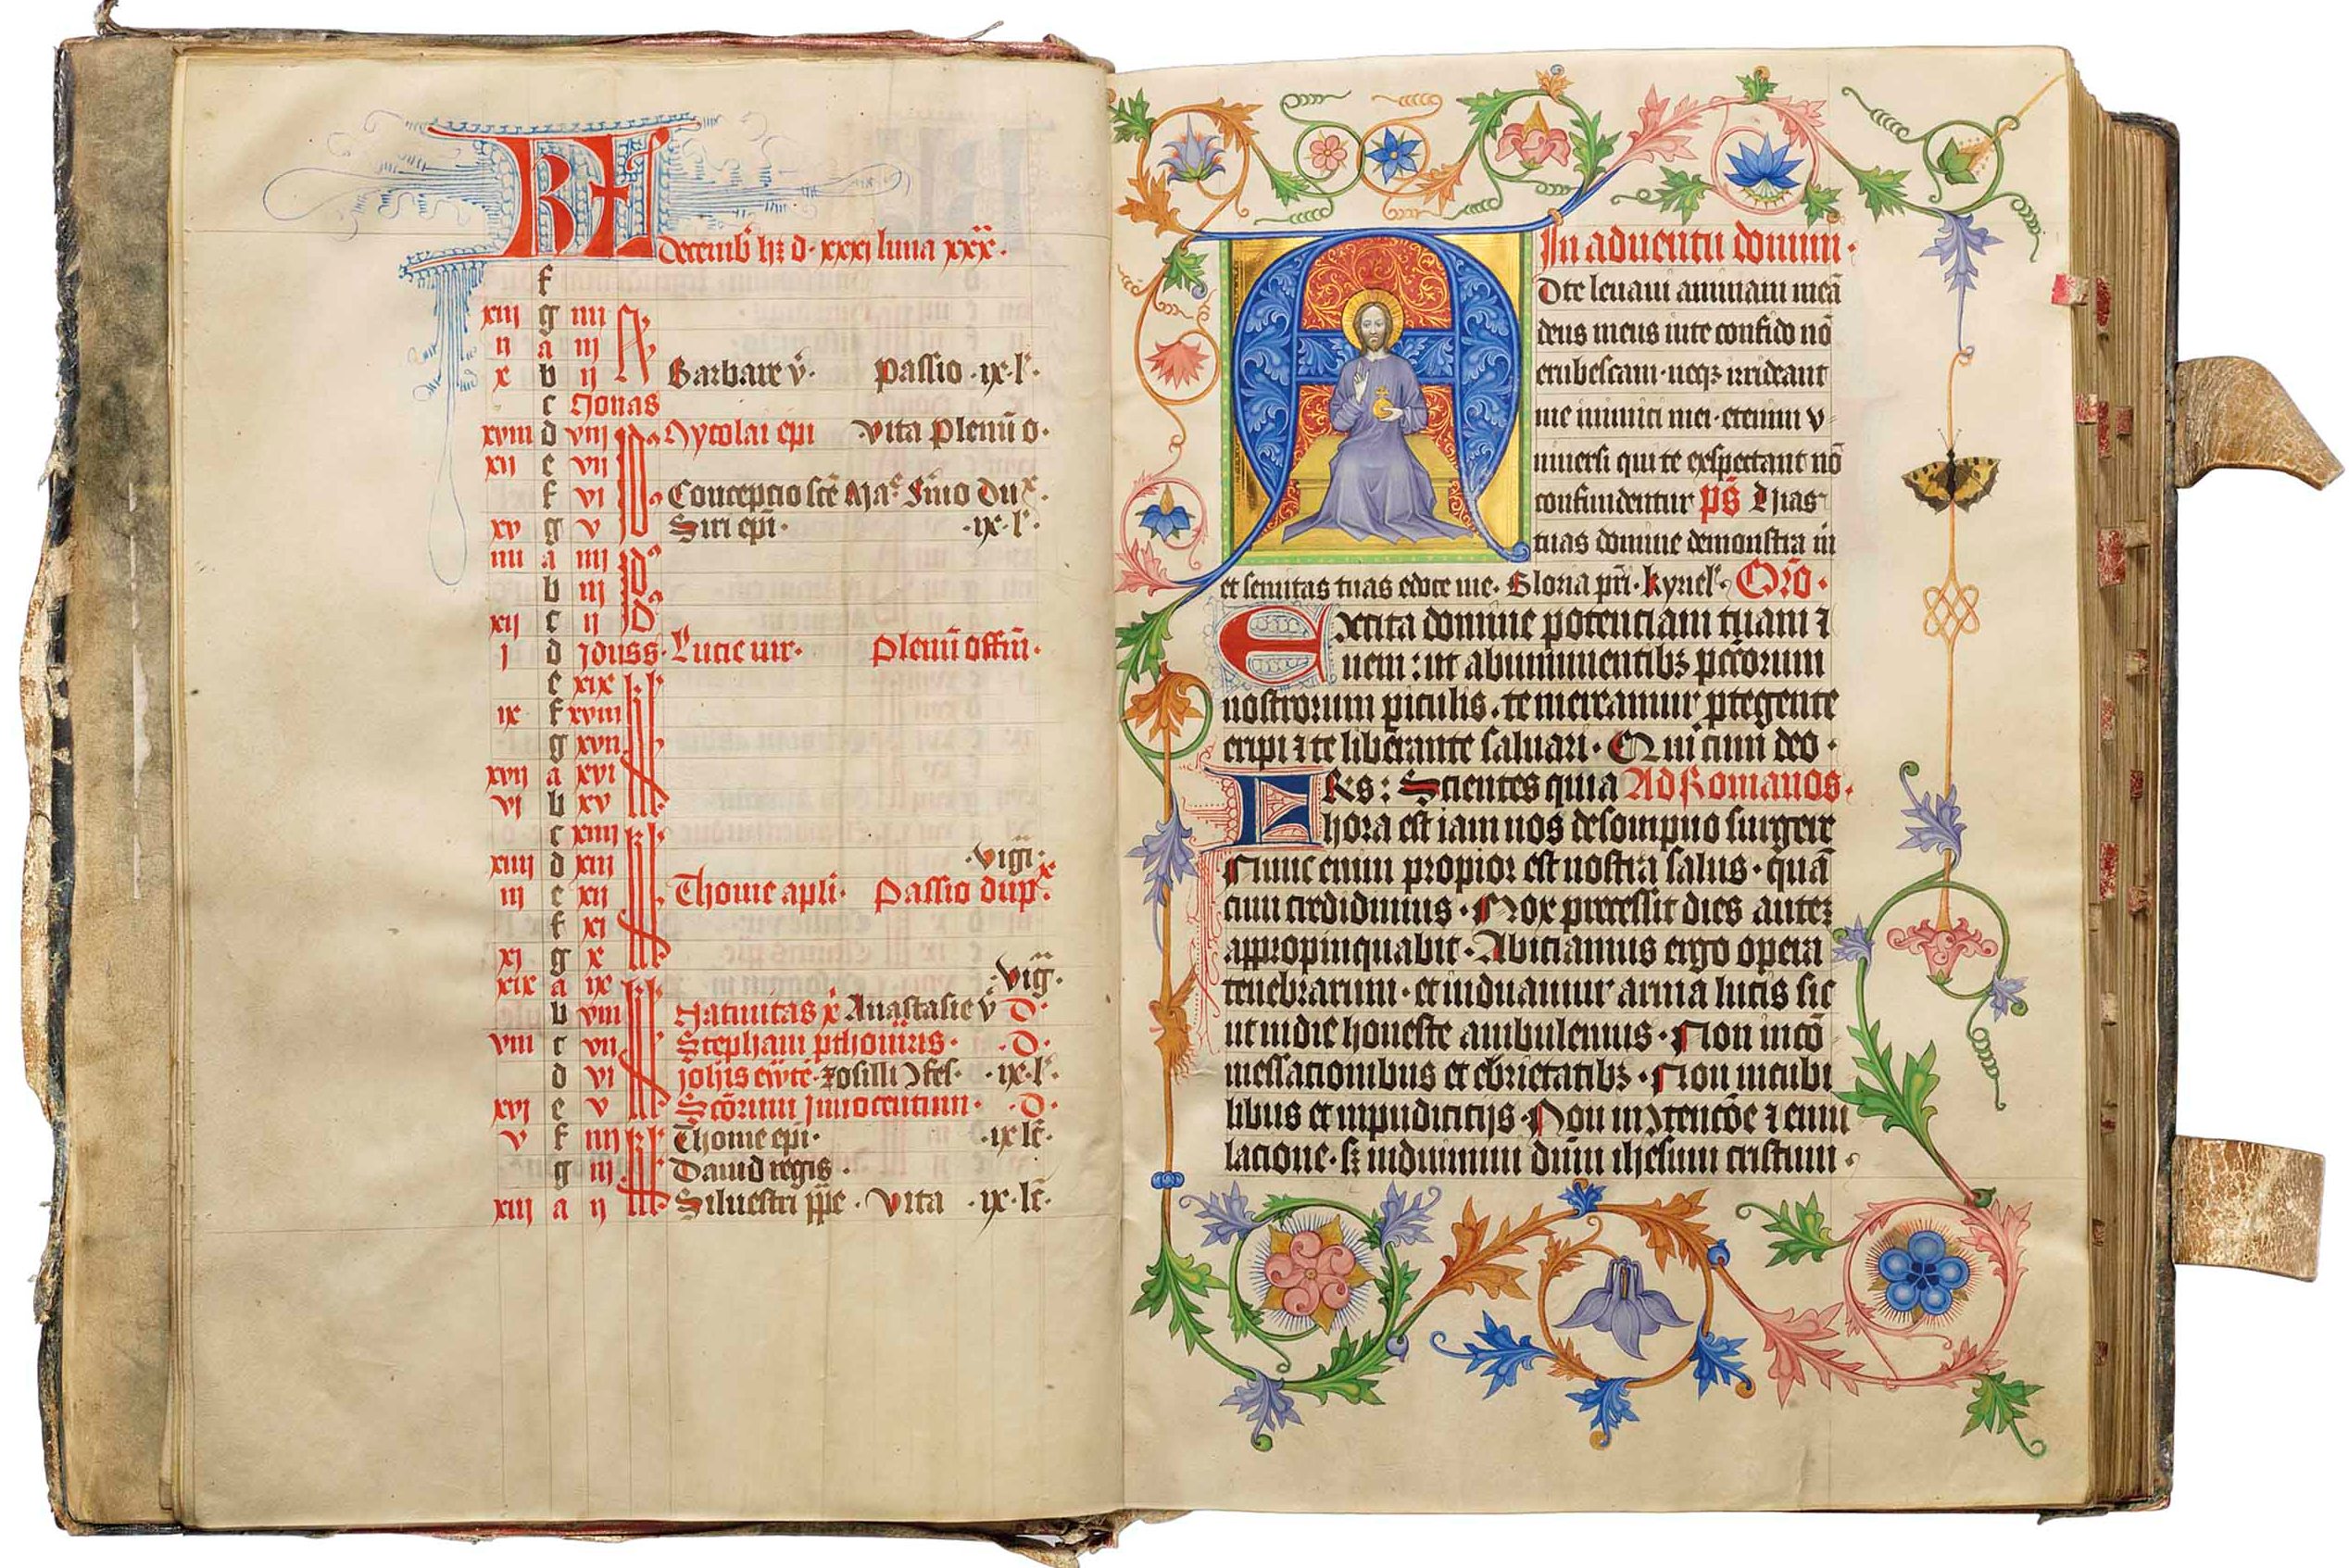 KL
decemb hꝫ d· xxxj luna xxx·
f
xiii g iiii
ii a iii
x b ii Barbare v̇· Passio ·ix·l·
c Nonas
xviii d viii Nycolai epi Vita Plenū o·
xii e vii
f vi Concepcio scē Mar̄ Sūmo Dux·
xv g v Siri epī· ·ix·l·
iiii a iiii
b iii
xii c ii
j d jduss· Lucie vir· Plenū offm̄·
e xix
ix f xviii
g xvii
xvii a xvi
vi b xv
c xiiii
xiiii d xiii ·Vigi·
iii e xii Thome apli· Passio dup̄x·
f xi
xi g x
xix a ix ·Vig̃·
b viii Natiuitas x̄ Anastasie v̇ D·
viii c vii Stephani ꝓthom̄ris· ·D·
d vi joh̄is ew̄te· Zosilli ꝯfes· ·ix·l·
xvi e v Scōrum jnnocentum· ·D·
v f iiii Thome epī· ·ix lc̄·
g iii Dauid regis·
xiii a ii Siluestri pp̄e· Vita ·ix·lc̄·
In aduentu domini·
A Dte leuaui animam meā
deus meus inte confido nō
erubescam·neqꝫ irrideant
me inimici mei·etenim v-
niuersi qui te exspectant nō
confundentur p̄s̄ Vias
tuas domine demonstra m̄
et semitas tuas edoce me· Gloria pr̄i· kyriel̄· Or̄o·
Excita domine potenciam tuam ⁊
ueni: ut abimminentibꝫ pcc̄orum
nostrorum ꝑiculis·te mereamur ꝓtegente
eripi ⁊ te liberante saluari· Qui cum deo·
FRs: Scientes quia Ad Romanos·
hora est iam nos desompno surgere
Nunc enim propior est nostra salus·quā
cum credidimus·Nox precessit dies autē
appropinquabit·Abiciamus ergo opera
tenebrarum·et induamur arma lucis sic
ut indie honeste ambulemus·Non incō
messacionibus et ebrietatibꝫ·Non incubi
libus et inpudicicijs·Non in ꝯtencōe ⁊ emu
lacione·sꝫ induimini dūm ihesum cristum·